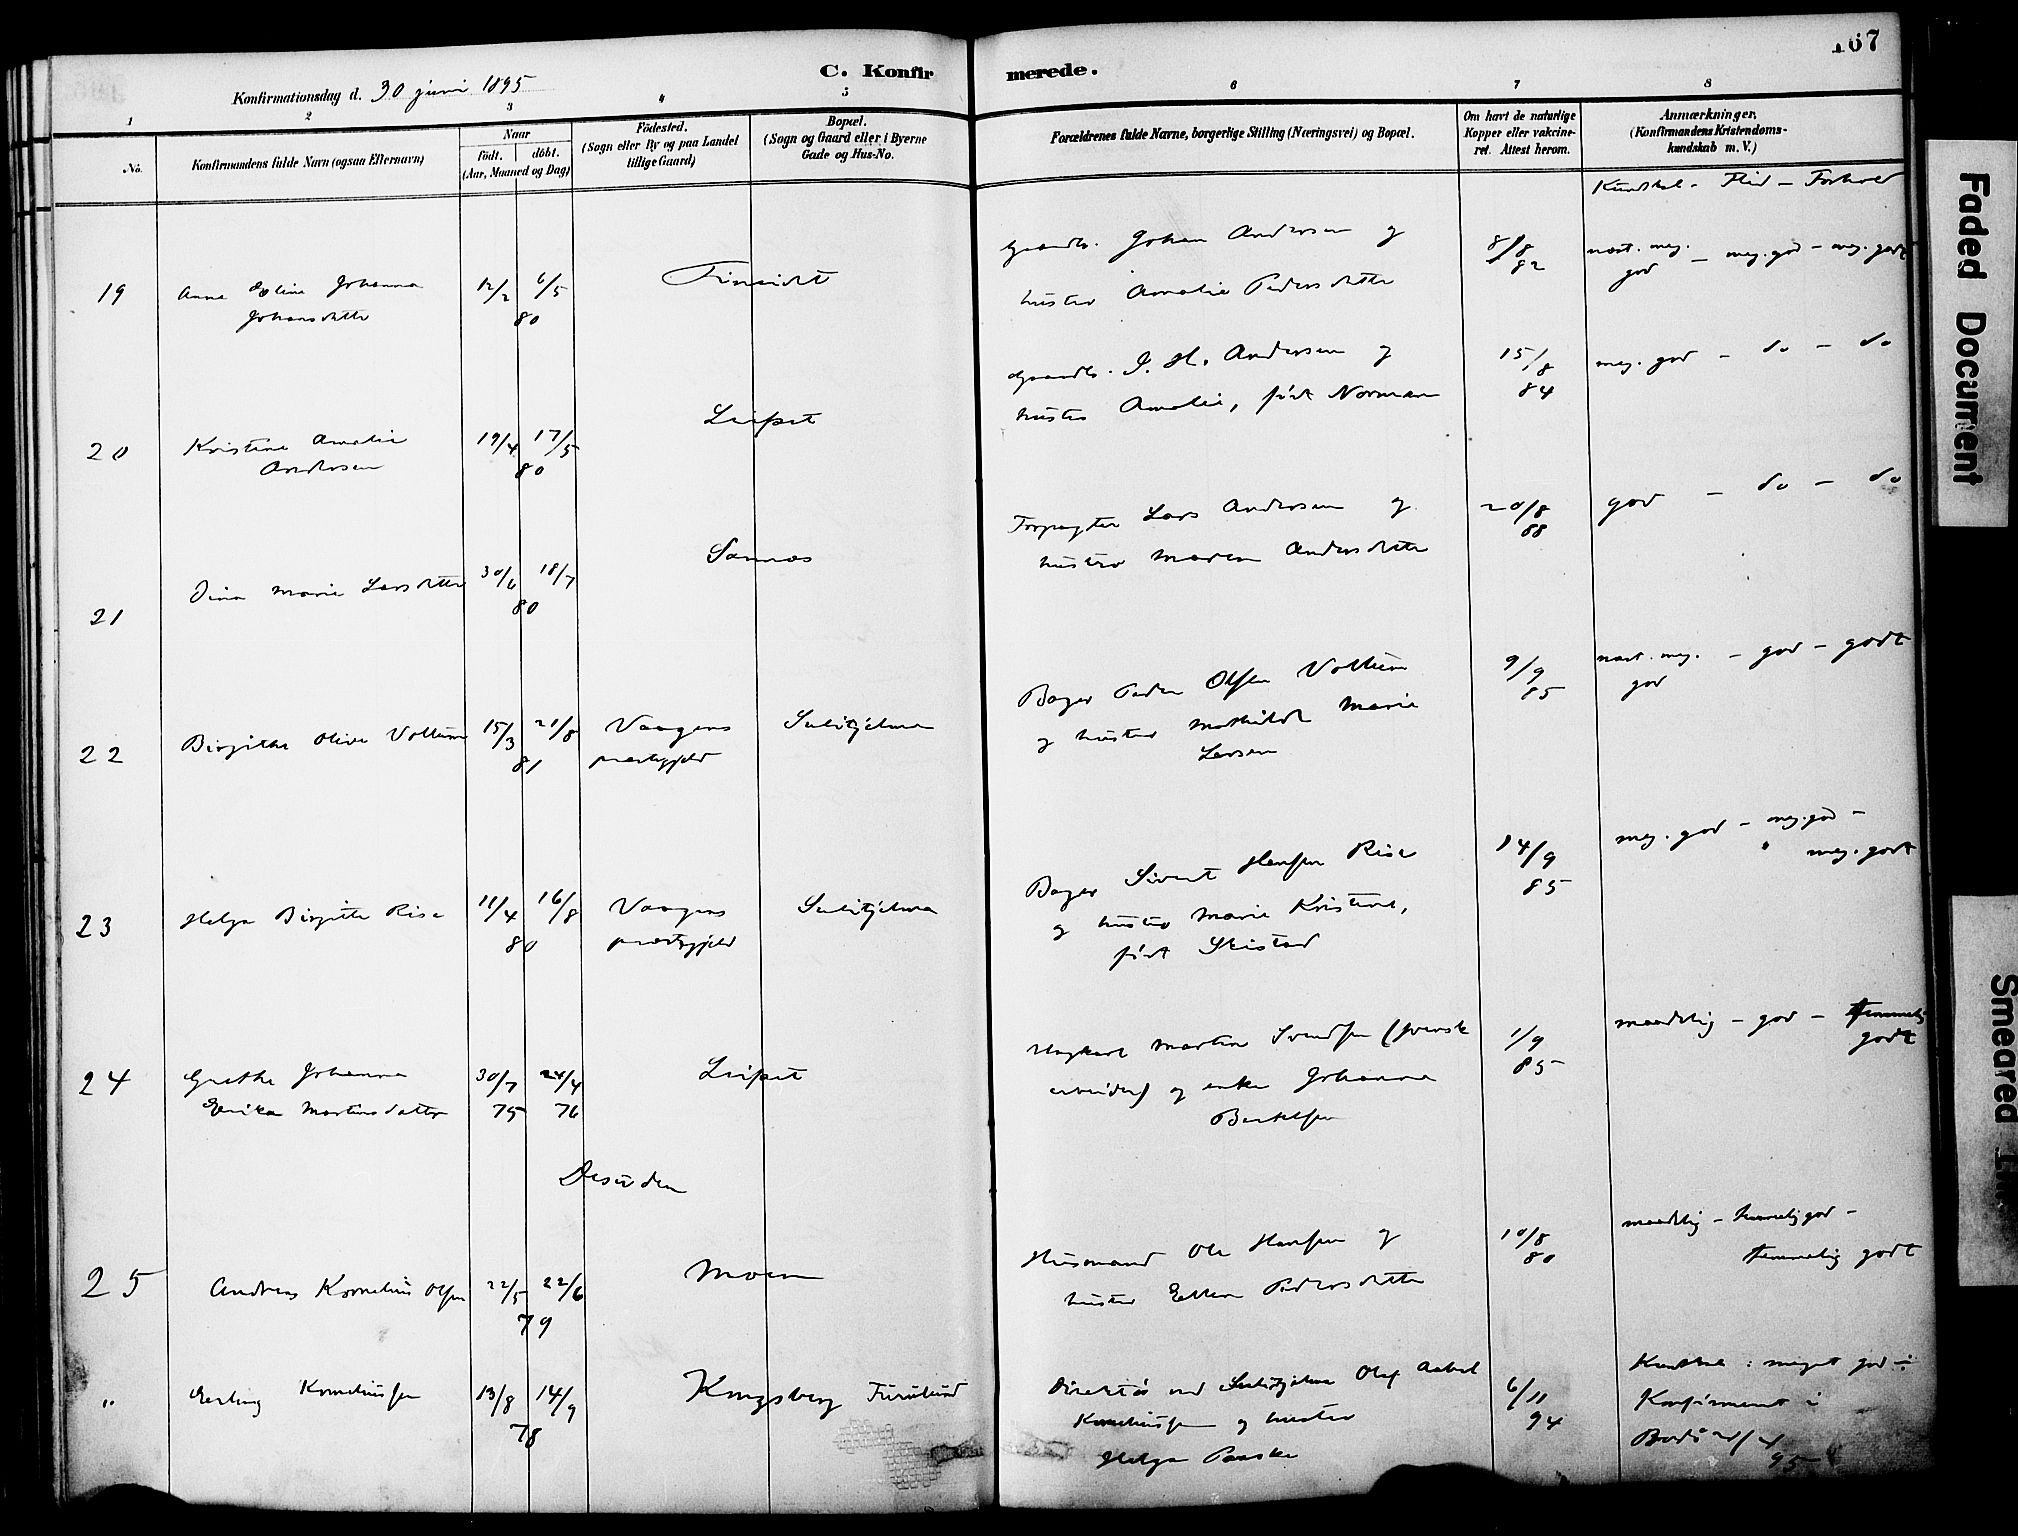 167
C. Konfirmerede.
Konfirmationsdag d. 30 juni 1895
1 2 3 4 5 6 7 8
No.
Konfirmandens fulde Navn (ogsaa Efternavn)
Naar
födt. döbt.
(Aar, Maaned og Dag)
Födested.
(Sogn eller By og paa Landet
tillige Gaard)
Bopæl.
(Sogn og Gaard eller i Byerne
Gade og Hus-No.
Forældrenes fulde Navne, borgerlige Stilling (Næringsvei) og Bopæl.
Om havt de naturlige
Kopper eller vakcine-
ret. Attest herom.
Anmærkninger.
(Konfirmandens Kristendoms-
kundskab m. V.)
Kundskab - Flid - Forhold
19 Anna Eline Johanna
Johansdatter
12/2 6/5
80
Finneidet
Gaardbr. Johan Andersen og
hustru Amalie Pedersdatter
8/8
82
næst. meg.
god - meg. god - meg. godt
20 Kristine Amalie
Andersen
19/4 17/5
80
Leifset
Gaardbr. J. H. Andersen og
hustru Amalie, født Norman
15/8
84
meg. god - do - do
21 Dina Marie Larsdatter
30/6 18/7
80
Sannæs
Forpagter Lars Andersen og
hustru Maren Andersdatter
20/8
88
god - do - do
22 Birgithe Olive Vollum
15/3 21/8
81
Vaagens
præstegjeld
Sulitjelma
Bager Peder Olsen Vollum
og hustru Mathilde Marie
Larsen
9/9
85
næst. meg. - god - godt
god
23 Helga Birgitte Rise
11/4 16/8
80
Vaagens
præstegjeld
Sulitjelma
Bager Sivert Hansen Rise
og hustru Marie Kristine,
født Skistad
14/9
85
meg. god - meg. god -
meg. godt
24 Grethe Johanna
Erika Martinsdatter
30/7 24/4
75 76
Leifset
Ungkarl Martin Svendsen (svensk
arbeider) og enke Johanna
Bertelsen
1/9
85
maadelig - god - temmelig
godt
Desuden
25 Andreas Kornelius Olsen
22/5 22/6
79
Moen
Husmand Ole Hansen og
hustru Ellen Pedersdatter
10/8
80
maadelig - temmelig god -
temmelig godt
" Erling Korneliussen
13/8 14/9
78
Kongsberg Furulund
Direktør ved Sulitjelma Olaf Aabel
Korneliussen og hustru
Helga Paaske
6/11
94
Kundskab: meget god
Konfirmeret i
Bodø
95
Faded Document
Smeared